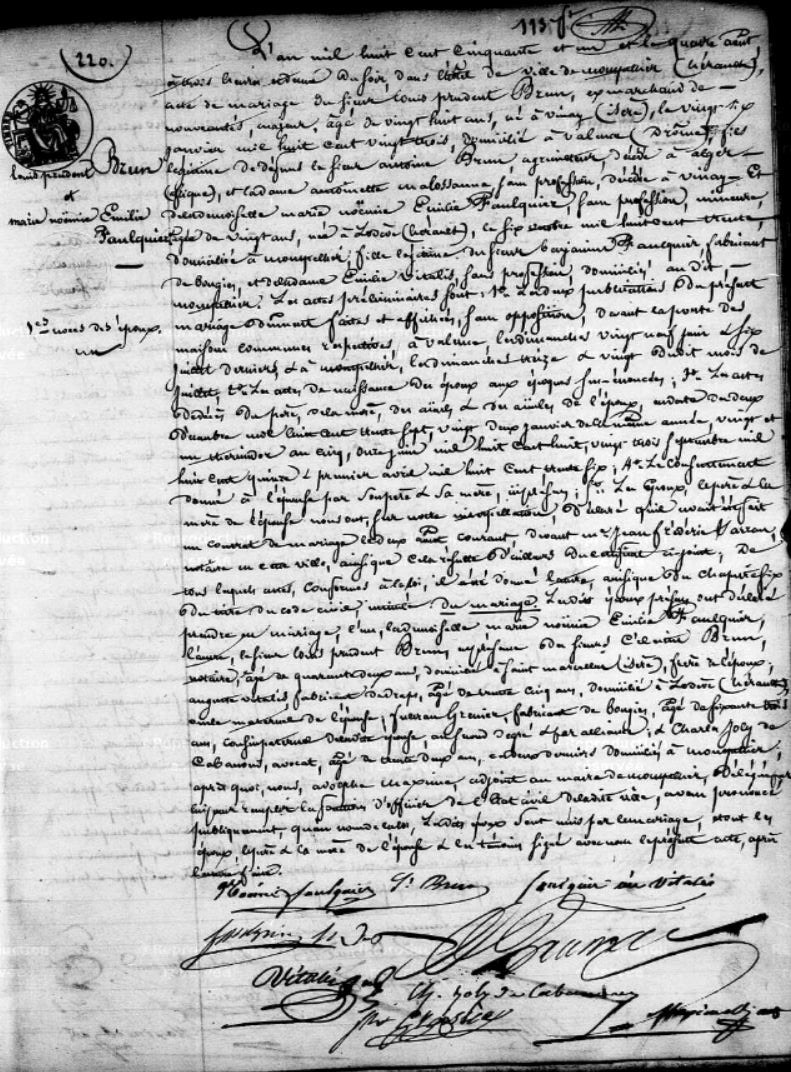 113
220.
L'an mil huit cent cinquante et un et le quatre août
à trois heures du soir, dans l'hôtel de ville de montpellier (hérault),
acte de mariage du sieur Louis prudent Brun, ex marchand de
nouveautés, majeur, âgé de vingt huit ans, né à vinay (isère), le vingt six
janvier mil huit cent vingt trois, domicilié à valence (Drôme), fils
légitime de défunts le sieur antoine Brun, décédé à alger
(afrique), et la dame antoinette malossanne, sans profession, décédée à vinay. Et
de la demoiselle marie noëmie Emilie Faulquier, sans profession, mineure,
âgée de vingt ans, née à Lodève (hérault), le six octobre mil huit cent trente,
domiciliée à montpellier, fille légitime du sieur benjamin Faulquier, fabricant
de bougies, et de la dame Emilie vitalis, sans profession, domiciliés au dit
montpellier. Les actes préliminaires sont: 1° Les deux publications du présent
mariage dûment faites et affichées, sans opposition, devant la porte des
maisons communes respectives, à valence, les dimanches vingt neuf juin & six
juillet derniers, & à montpellier, les dimanches treize & vingt dudit mois de
juillet; 2° Les actes de naissance des époux aux époques sus-énoncées; 3° Les actes
de décès du père, de la mère, des aïeuls & des aïeules de l'époux, en date du deux
décembre mil huit cent trente sept, vingt deux janvier de la même année, vingt et
un thermidor an cinq, onze juin mil huit cent huit, vingt trois septembre mil
huit cent quinze & premier avril mil huit cent trente six; 4° Le consentement
donné à l'épouse par son père & sa mère, ici présens; 5° Les époux, le père & la
mère de l'épouse nous ont, sur notre interpellation, déclaré qu'il avait été fait
un contrat de mariage le deux août courant, devant mr Jean frédéric
notaire en cette ville, ainsi que cela résulte d'ailleurs du certificat ci-joint; De
tous lesquels actes, conformes à la loi, il a été donné lecture, ainsi que du chapitre six
du titre du code civil intitulé du mariage. Les dits époux présens ont déclaré
prendre en mariage, l'un, la demoiselle marie noëmie Emilie Faulquier,
l'autre, le sieur Louis prudent Brun, en présence des sieurs Brun,
notaire, âgé de quarante deux ans, domicilié à saint marcellin (isère), frère de l'époux;
auguste vitalis fabricant de draps, âgé de trente cinq ans, domicilié à Lodève (hérault),
oncle maternel de l'épouse; Grenier, fabricant de bougies, âgé de soixante trois
ans, cousin paternel de ladite épouse, au second degré & par alliance; & Charles Joly de
Cabanous, avocat, âgé de trente deux ans, ces deux derniers domiciliés à montpellier;
après quoi, nous, adolphe maxime, adjoint au maire de montpellier, délégué par
lui pour remplir les fonctions d'officier de l'état civil de ladite ville, avons prononcé
publiquement, qu'au nom de la loi, les dits époux sont unis par le mariage, et ont les
époux, le père & la mère de l'épouse & les témoins signé avec nous le présent acte, après
lecture faite.
Louis prudent Brun
et
marie noëmie Emilie
Faulquier
1res noces des époux.
Noémie Faulquier Brun Faulquier née Vitalis
Vitalis
Ch. Joly de Cabanous